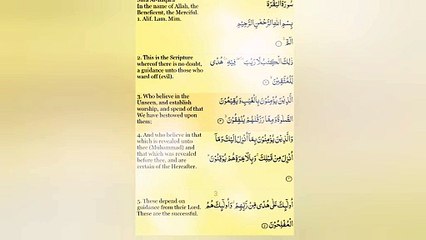 سُورَةُ الْبَقَرَةِ
In the name of Allah, the
Beneficent, the Merciful.
بِسْمِ اللَّهِ الرَّحْمَٰنِ الرَّحِيمِ
1. Alif. Lam. Mim.
الٓمٓ
2. This is the Scripture
whereof there is no doubt,
a guidance unto those who
ward off (evil).
ذَٰلِكَ الْكِتَابُ لَا رَيْبَ ۛ فِيهِ ۛ هُدًى
لِّلْمُتَّقِينَ
3. Who believe in the
Unseen, and establish
worship, and spend of that
We have bestowed upon
them;
الَّذِينَ يُؤْمِنُونَ بِالْغَيْبِ وَيُقِيمُونَ
الصَّلَوٰةَ وَمِمَّا رَزَقْنَٰهُمْ يُنْفِقُونَ
4. And who believe in that
which is revealed unto
thee (Muhammad) and
that which was revealed
before thee, and are
certain of the Hereafter.
وَالَّذِينَ يُؤْمِنُونَ بِمَا أُنْزِلَ إِلَيْكَ وَمَا
أُنْزِلَ مِنْ قَبْلِكَ وَبِالْآخِرَةِ هُمْ يُوقِنُونَ
5. These depend on
guidance from their Lord.
These are the successful.
أُولَٰئِكَ عَلَىٰ هُدًى مِّنْ رَّبِّهِمْ وَأُولَٰئِكَ هُمُ
الْمُفْلِحُونَ